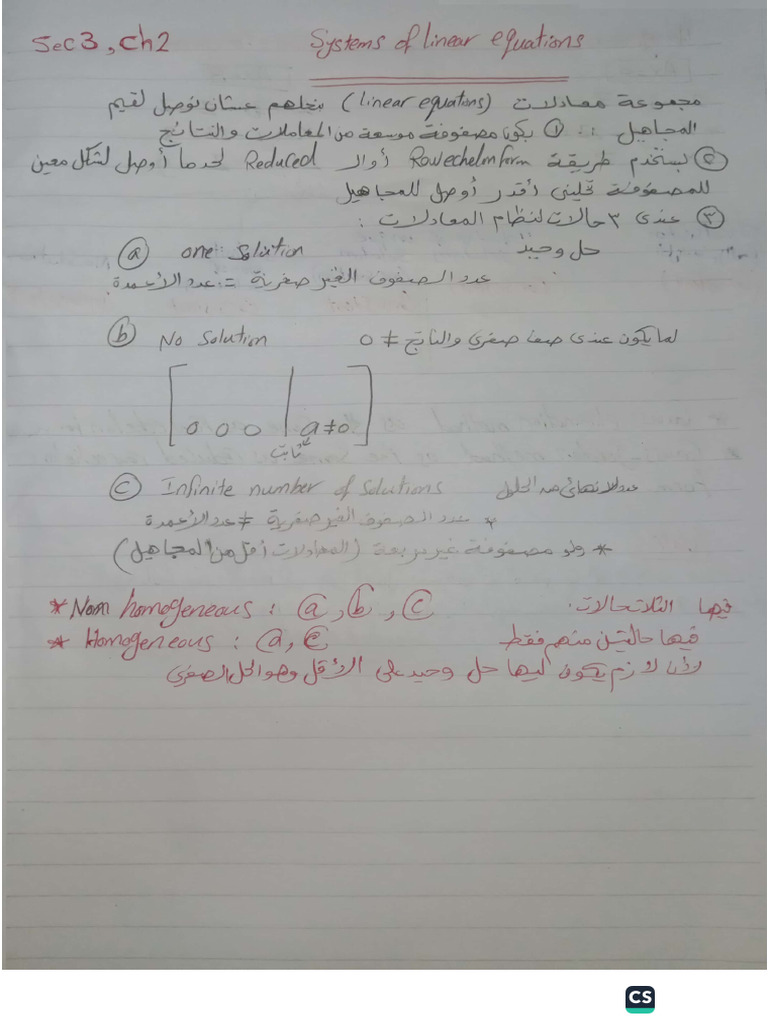 Sec 3, Ch2 Systems of linear equations
مجموعة معادلات (linear equations) بنحلهم عشان نوصل لقيم
المجاهيل :. ① بكون مصفوفة موسعة من المعاملات والنتائج
② بستخدم طريقة Row echelon form أو الـ Reduced لحد ما أوصل لشكل معين
للمصفوفة تخليني أقدر أوصل للمجاهيل
③ عندى ٣ حالات لنظام المعادلات :
ⓐ one solution حل وحيد
عدد الصفوف الغير صفرية = عدد الأعمدة
ⓑ No solution لما يكون عندى صفا صفري والناتج ≠ 0
0 0 0 | a≠0
ثابت
ⓒ Infinite number of solutions عدد لانهائي من الحلول
* عدد الصفوف الغير صفرية ≠ عدد الأعمدة
* ولو مصفوفة غير مربعة (المعادلات أقل من المجاهيل)
* Non homogeneous : ⓐ, ⓑ, ⓒ فيها الثلاث حالات.
* Homogeneous : ⓐ, ⓒ فيها حالتين منهم فقط
لأن لازم يكون ليها حل وحيد على الأقل وهو الحل الصفري
CS